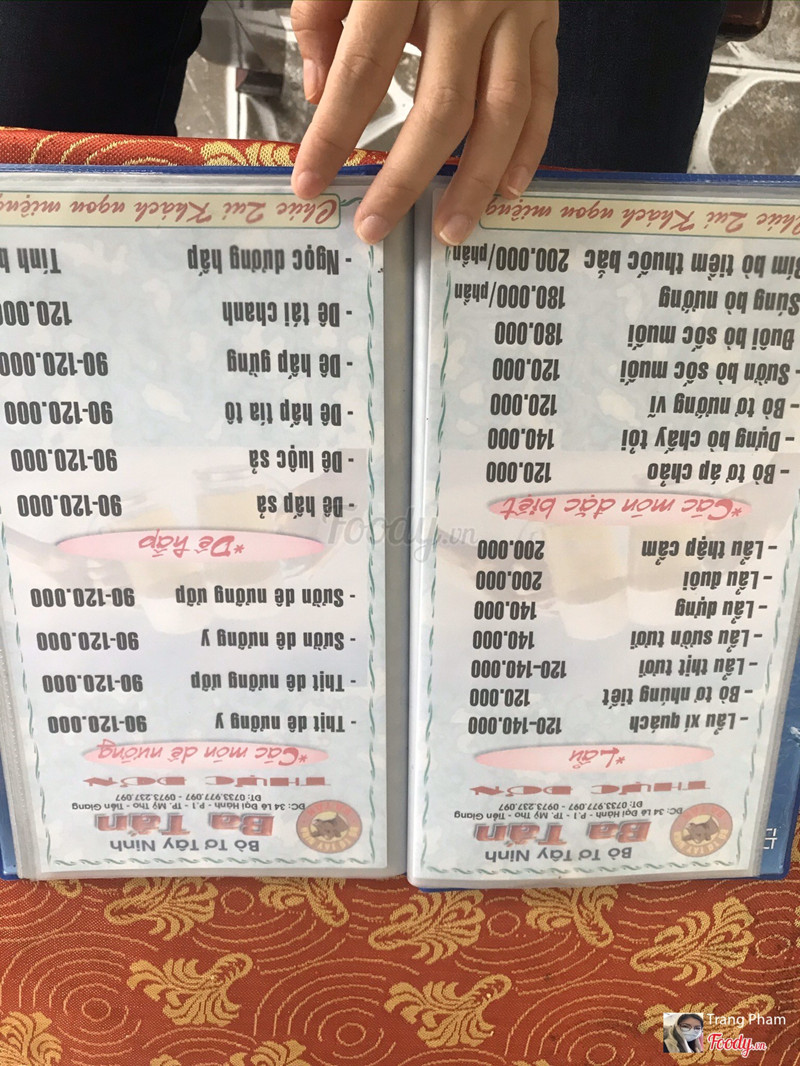 Bò Tơ Tây Ninh
Ba Tấn
ĐC: 34 Lê Đại Hành - P.1 - TP. Mỹ Tho - Tiền Giang
ĐT: 0733.977.097 - 0973.237.097
THỰC ĐƠN
*Lẩu
- Lẩu xí quách 120-140.000
- Bò tơ nhúng tiết 120.000
- Lẩu thịt tươi 120-140.000
- Lẩu sườn tươi 140.000
- Lẩu dựng 140.000
- Lẩu đuôi 200.000
- Lẩu thập cẩm 200.000
*Các món đặc biệt
- Bò tơ áp chảo 120.000
- Dựng bò cháy tỏi 140.000
- Bò tơ nướng vĩ 120.000
- Sườn bò sốc muối 120.000
Đuôi bò sốc muối 180.000
Súng bò nướng 180.000/phần
Bím bò tiềm thuốc bắc 200.000/phần
Chúc Quí Khách ngon miệng
Bò Tơ Tây Ninh
Ba Tấn
ĐC: 34 Lê Đại Hành - P.1 - TP. Mỹ Tho - Tiền Giang
ĐT: 0733.977.097 - 0973.237.097
THỰC ĐƠN
*Các món dê nướng
- Thịt dê nướng y 90-120.000
- Thịt dê nướng ướp 90-120.000
- Sườn dê nướng y 90-120.000
- Sườn dê nướng ướp 90-120.000
*Dê hấp
- Dê hấp sả 90-120.000
- Dê luộc sả 90-120.000
- Dê hấp tía tô 90-120.000
- Dê hấp gừng 90-120.000
- Dê tái chanh 120.000
- Ngọc dương hấp Tính
Chúc Quí Khách ngon miệng
Foody.vn
Trang Pham
Foody.vn